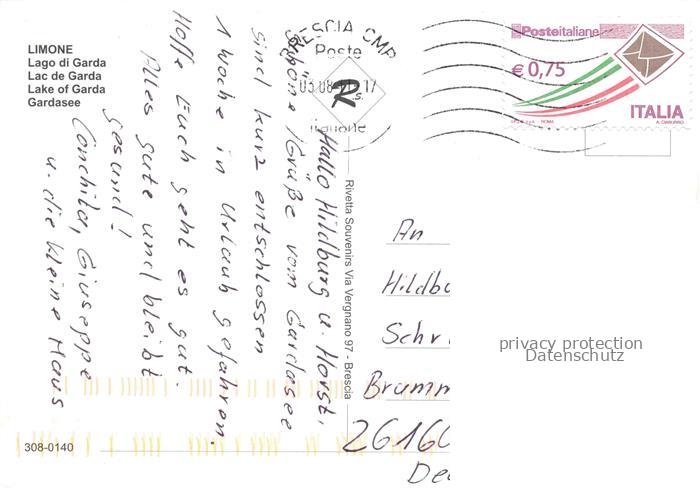 LIMONE
Lago di Garda
Lac de Garda
Lake of Garda
Gardasee
RESCIA CMP
Poste
italiane
Posteitaliane
€ 0,75
ITALIA
Hallo Hildburg u. Horst,
schöne Grüße vom Gardasee
sind kurz entschlossen
1 Woche in Urlaub gefahren.
Hoffe Euch geht es gut.
Alles gute und bleibt
gesund!
Conchita, Giuseppe
u. die kleine Maus
Rivetta Souvenirs Via Vergnano 97 - Brescia
An
Hildbu
Schr
Bramm
26160
De
privacy protection
Datenschutz
308-0140